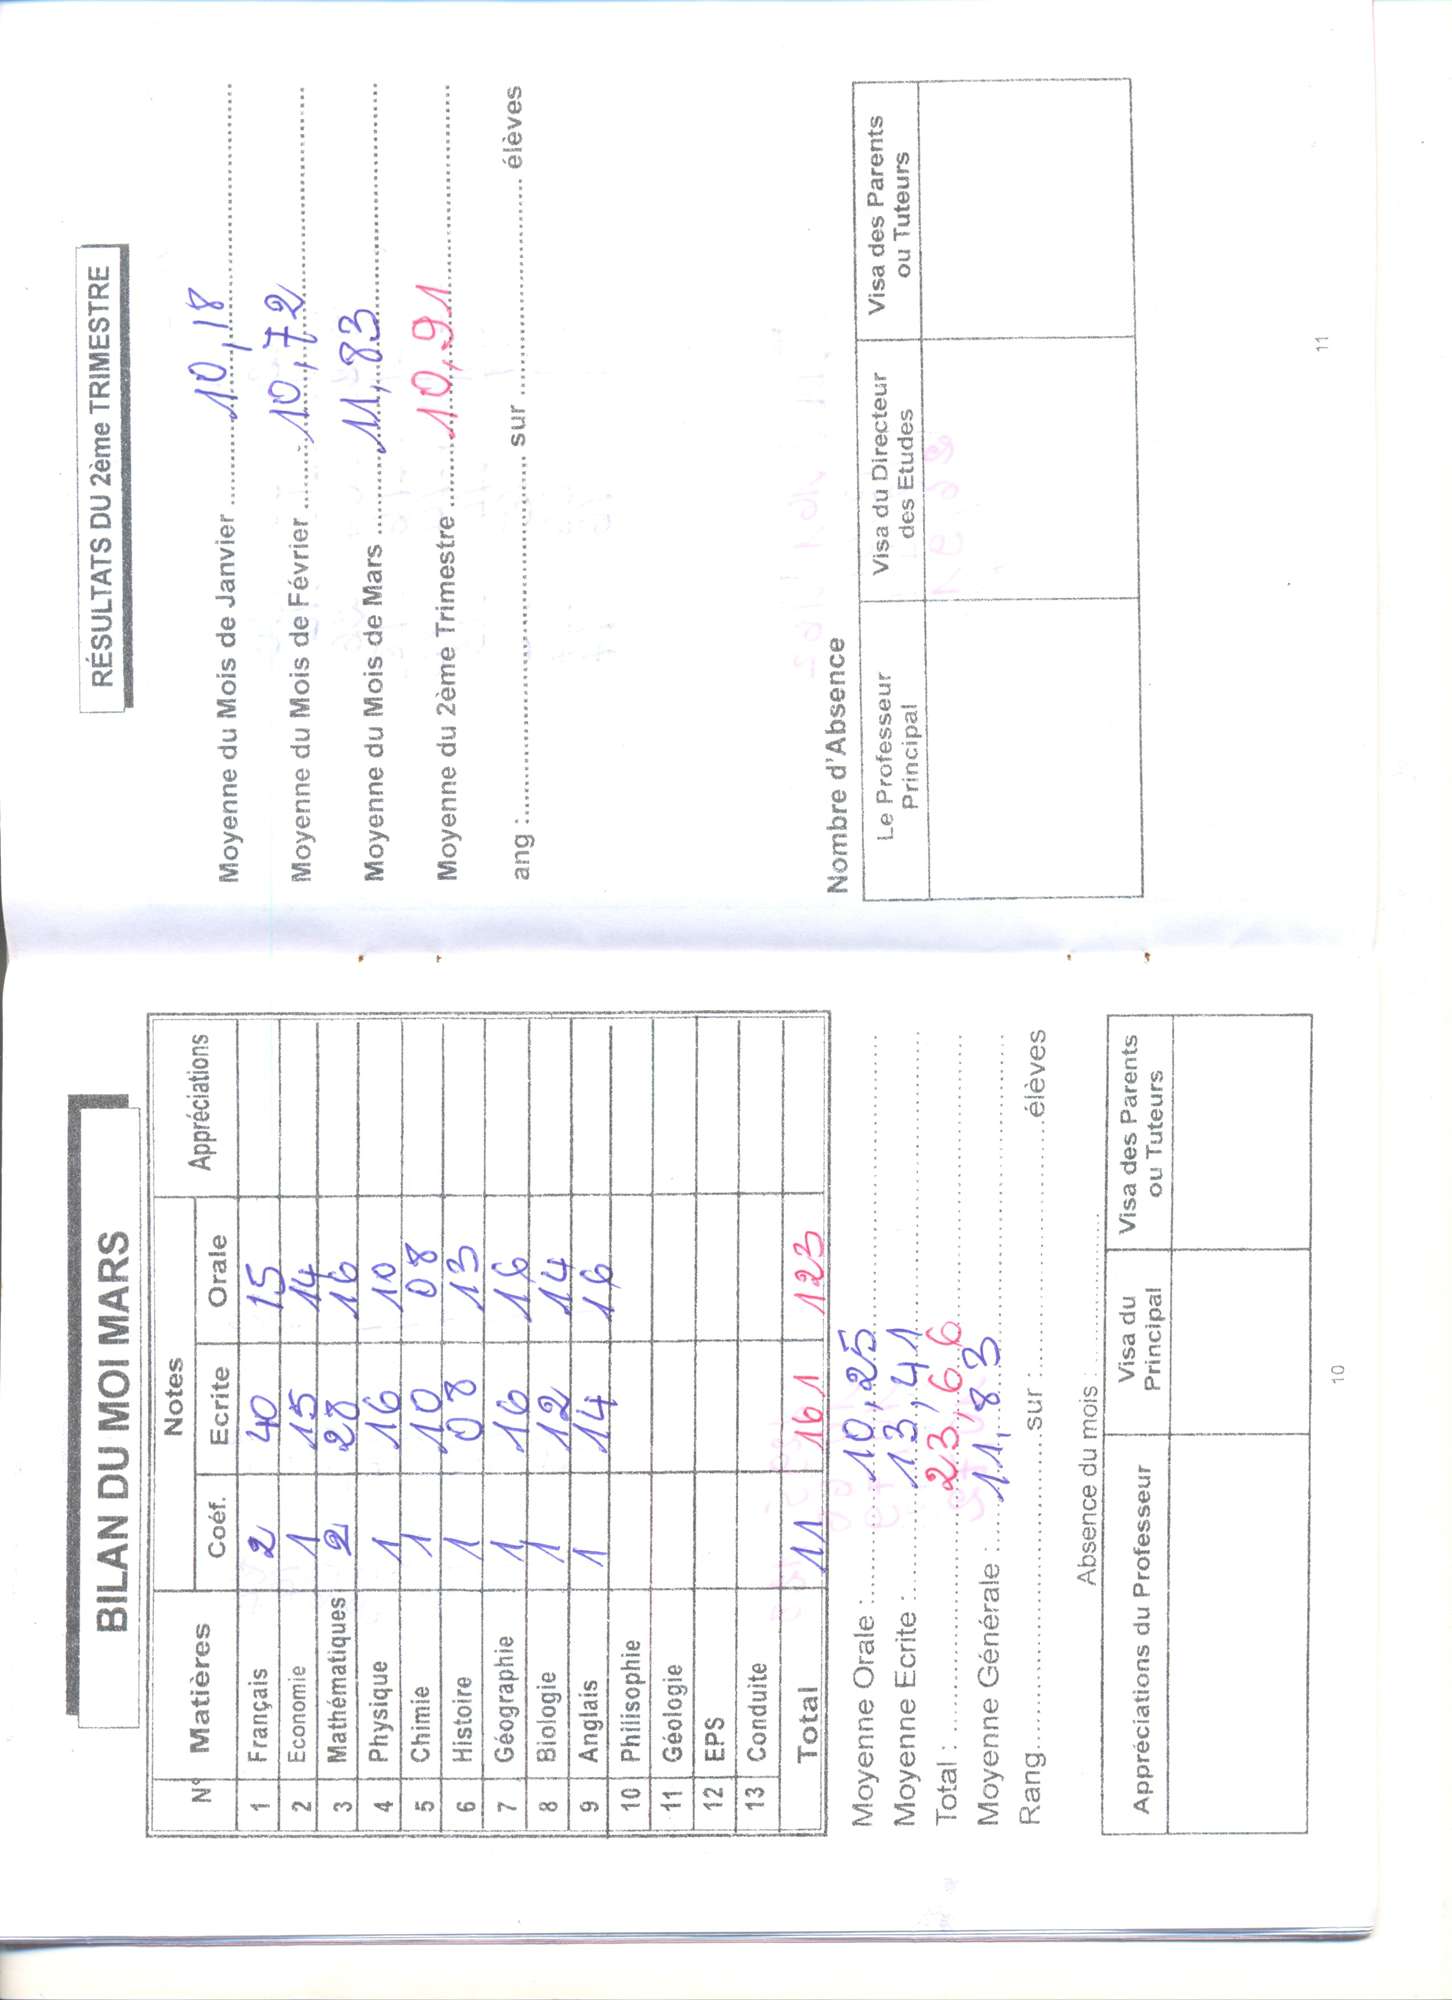 BILAN DU MOI MARS
N° Matières Notes Appréciations
Coéf. Ecrite Orale
1 Français 2 40 15
2 Economie 1 15 14
3 Mathématiques 2 28 16
4 Physique 1 16 10
5 Chimie 1 10 08
6 Histoire 1 08 13
7 Géographie 1 16 16
8 Biologie 1 12 14
9 Anglais 1 14 16
10 Philisophie
11 Géologie
12 EPS
13 Conduite
Total 11 161 123
Moyenne Orale : 10,25
Moyenne Ecrite : 13,41
Total : 23,66
Moyenne Générale : 11,83
Rang sur : élèves
Absence du mois :
Appréciations du Professeur Visa du Principal Visa des Parents ou Tuteurs
10
RÉSULTATS DU 2ème TRIMESTRE
Moyenne du Mois de Janvier 10,18
Moyenne du Mois de Février 10,72
Moyenne du Mois de Mars 11,83
Moyenne du 2ème Trimestre 10,91
ang : sur élèves
Nombre d'Absence
Le Professeur Principal Visa du Directeur des Etudes Visa des Parents ou Tuteurs
11